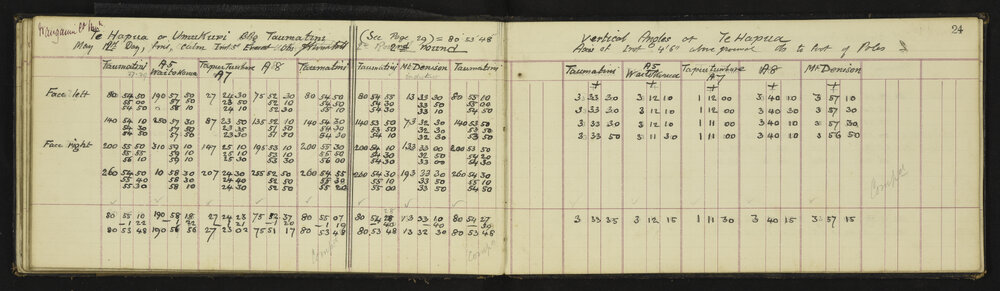 24
Te Hapua or Umukuri Blg Taumatini (See Page 29) = 80 53 48
May 19th Day, fine, calm Inst 5" Everest Obs
2nd Round
Vertical Angles at Te Hapua
Axis of Inst 4'5" above ground Obs to top of Poles
Taumatini A5 Tapui Turbine A8 Taumatini Taumatini Mt Denison Taumatini
Waitohora A7
Taumatini A5 Tapui Turbine A8 Mt Denison
Waitohora A7
+ + + + +
Face left 80 54 50 190 57 50 27 24 30 75 52 30 80 54 50 80 54 55 13 33 30 80 55 10 3 33 30 3 12 10 1 12 00 3 40 10 3 57 10
55 00 57 50 23 50 52 10 54 50 54 50 33 30 55 00 3 33 30 3 12 10 1 12 00 3 40 00 3 57 30
54 50 58 10 24 10 52 30 54 30 54 30 33 10 54 50
140 54 10 250 57 30 87 23 50 135 52 10 140 54 30 140 53 50 73 32 30 140 53 50 3 33 30 3 12 10 1 11 00 3 40 10 3 57 30
54 30 57 50 23 35 51 50 54 30 53 50 32 30 53 50 3 33 50 3 11 30 1 11 00 3 40 30 3 56 50
54 30 57 50 23 30 51 50 54 30 54 30 32 30 53 50
Face right 200 55 50 310 59 10 147 25 10 195 53 10 200 55 30 200 54 10 133 33 00 200 54 50
55 50 59 10 25 10 53 10 55 50 54 30 32 50 54 20
56 10 59 10 25 30 53 30 56 00 54 30 33 00 54 30
260 54 50 10 58 30 207 24 30 255 52 50 260 54 55 260 54 30 193 33 30 260 54 50
55 40 58 30 24 40 52 50 55 30 55 00 33 50 55 10
55 30 58 10 24 30 52 50 55 20 55 00 33 50 54 50
80 55 10 190 58 18 27 24 23 75 52 37 80 55 07 80 54 28 13 33 10 80 54 27 3 33 35 3 12 15 1 11 30 3 40 15 3 57 15
80 53 48 190 56 56 27 23 02 75 51 17 80 53 48 80 53 48 13 32 30 80 53 48